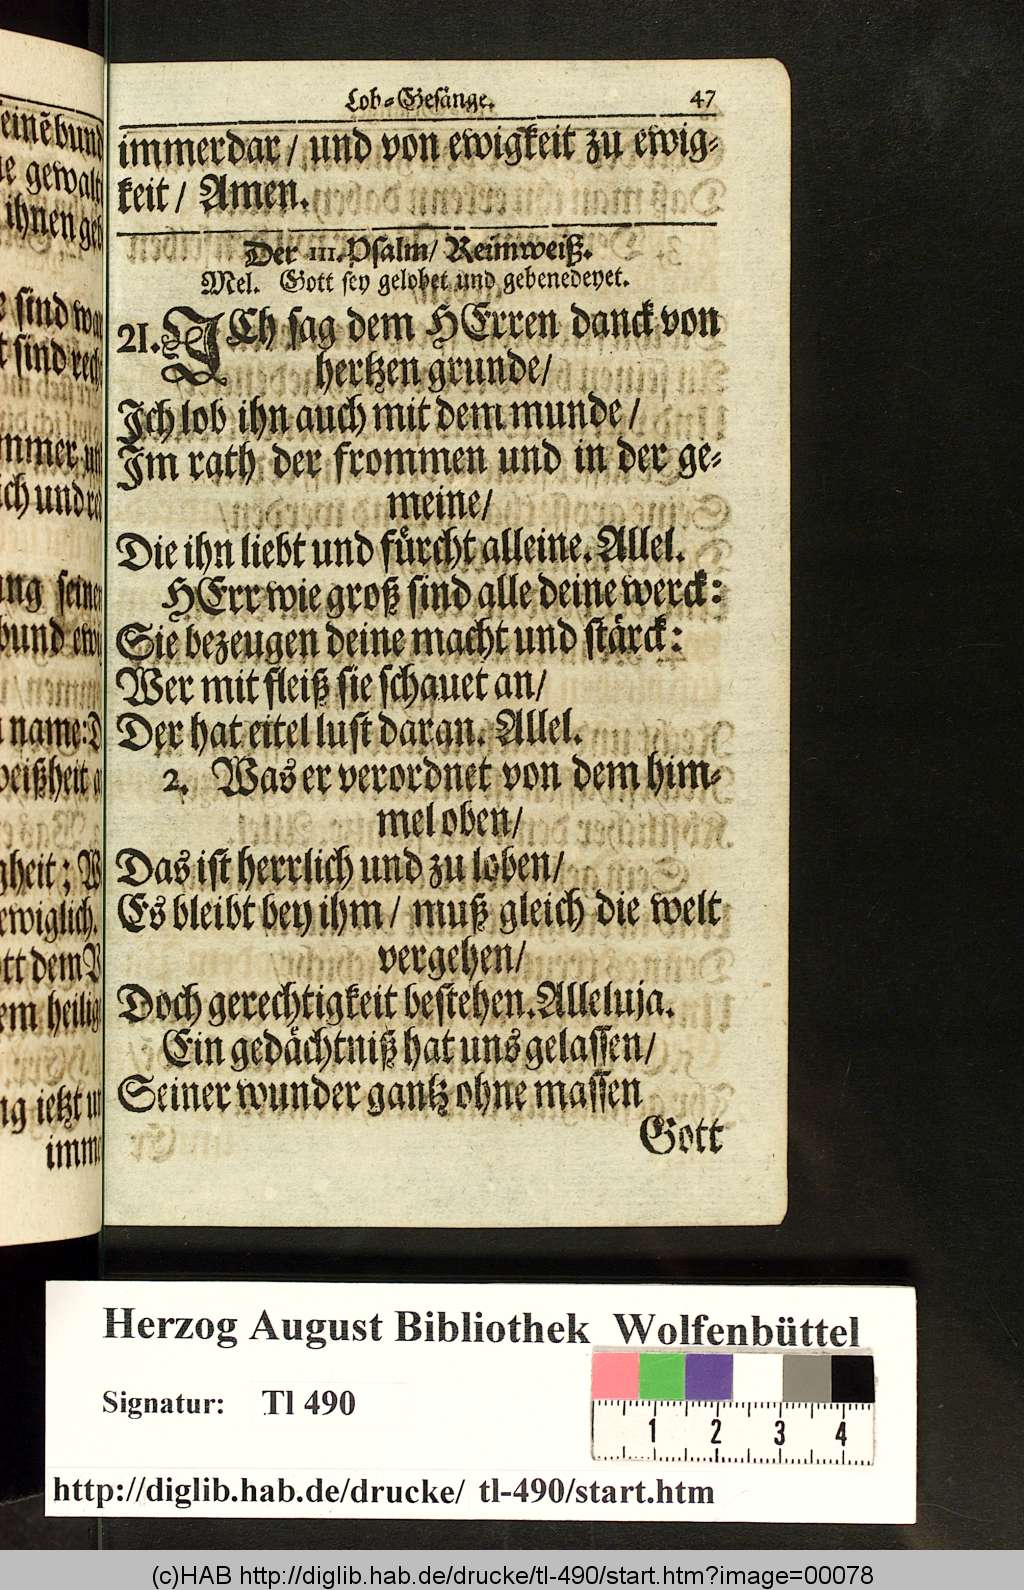 Lob-Gesänge. 47
immerdar / und von ewigkeit zu ewig-
keit / Amen.
Der III. Psalm / Reimweiß.
Mel. Gott sey gelobet und gebenedeyet.
21. ICh sag dem HErren danck von
hertzen grunde /
Ich lob ihn auch mit dem munde /
Im rath der frommen und in der ge-
meine /
Die ihn liebt und fürcht alleine. Allel.
HErr wie groß sind alle deine werck:
Sie bezeugen deine macht und stärck:
Wer mit fleiß sie schauet an /
Der hat eitel lust daran. Allel.
2. Was er verordnet von dem him-
mel oben /
Das ist herrlich und zu loben /
Es bleibt bey ihm / muß gleich die welt
vergehen /
Doch gerechtigkeit bestehen. Alleluja.
Ein gedächtniß hat uns gelassen /
Seiner wunder gantz ohne massen
Gott
Herzog August Bibliothek Wolfenbüttel
Signatur: Tl 490
1 2 3 4
http://diglib.hab.de/drucke/ tl-490/start.htm
(c)HAB http://diglib.hab.de/drucke/tl-490/start.htm?image=00078